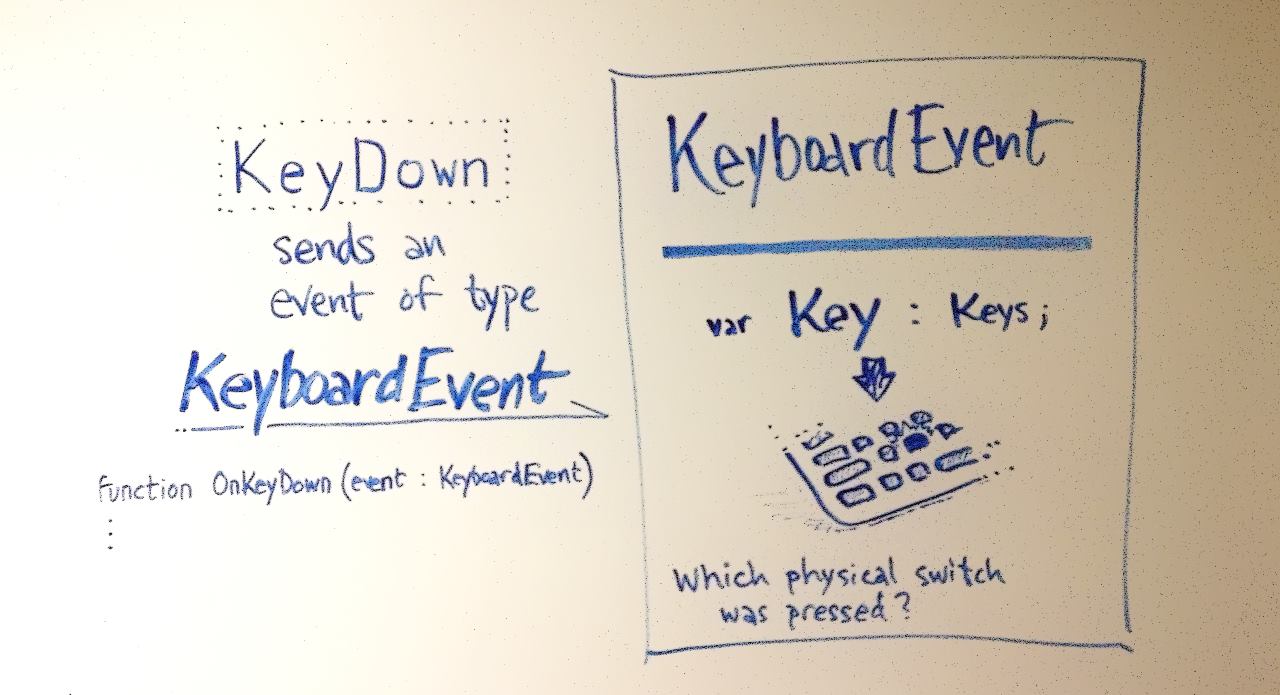 KeyDown
sends an
event of type
KeyboardEvent
function OnKeyDown (event : KeyboardEvent)
KeyboardEvent
var Key : Keys;
Which physical switch
was pressed?